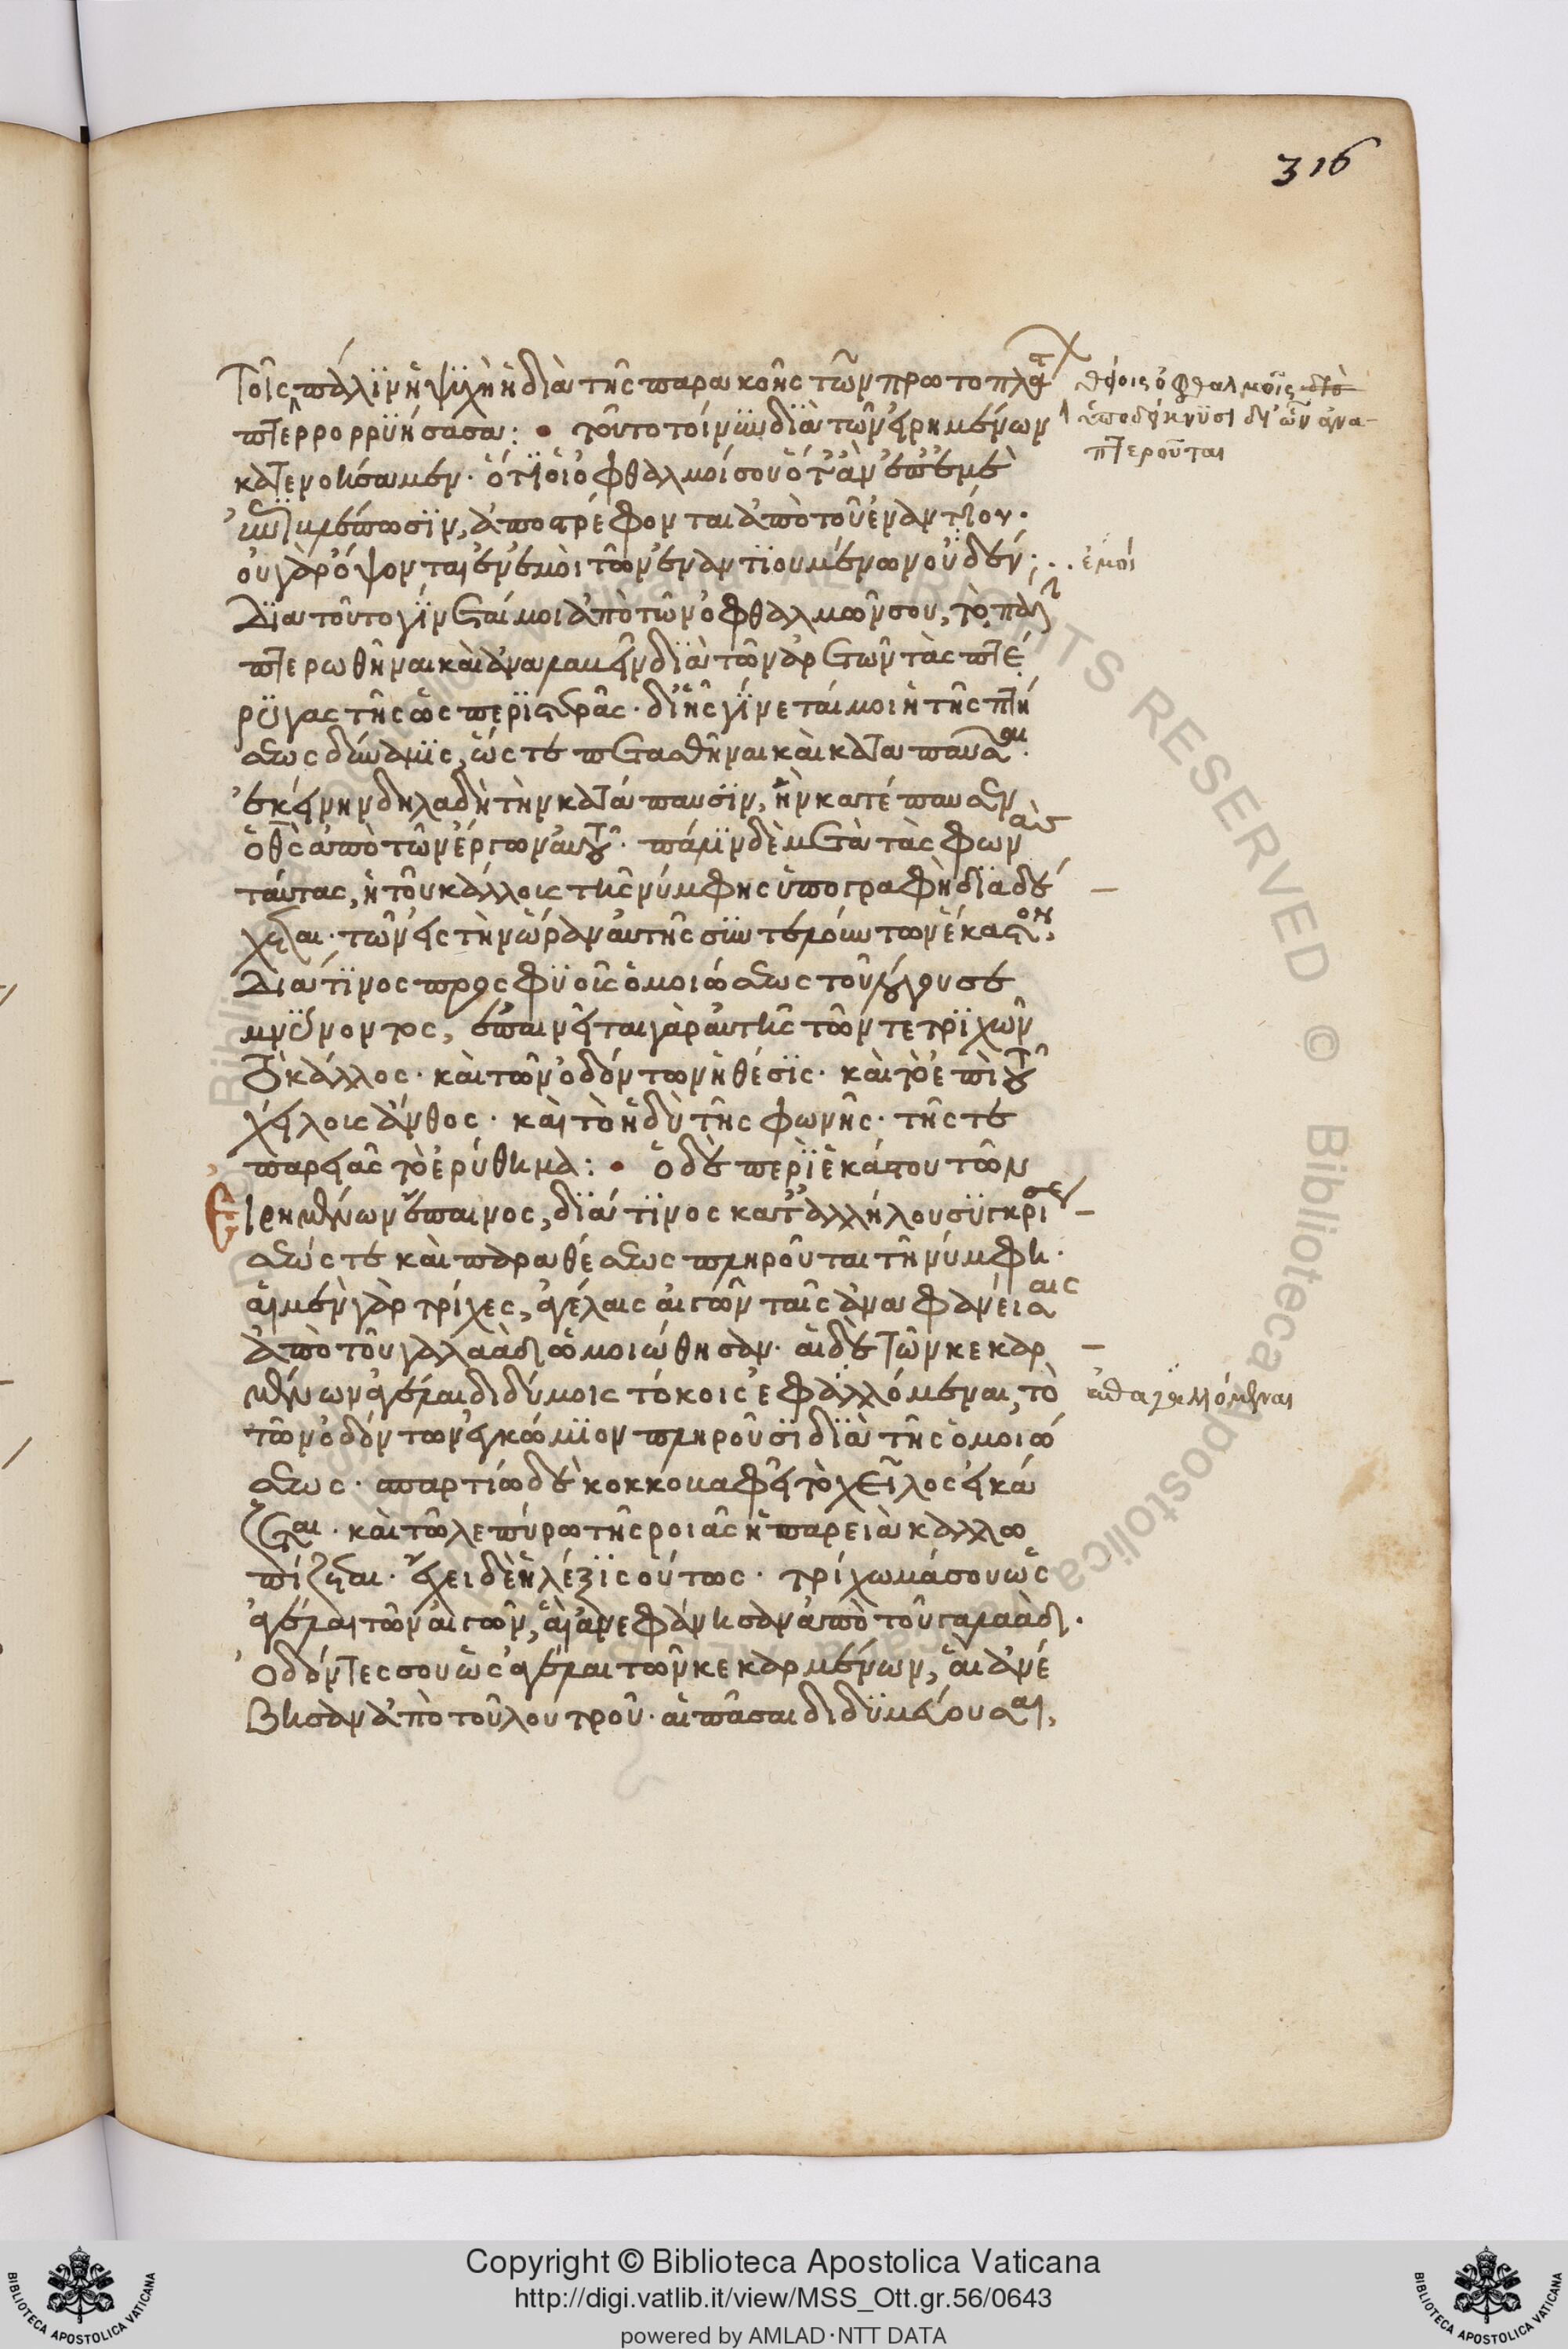 316
Τοῖς πάλϊν ἡ ψϋχὴ ἡ διὰ τῆς παρακοῆς τῶν πρωτοπλάστ
πτερρορρϋήσασα: • τοῦτο τοίνϋν δϊὰ τῶν εἰρημένων
κατενοήσαμεν· ὅτϊ οἱ ὀφθαλμοί σου ὅτ' ἂν ἐπ' ἐμὲ
βλέπωσϊν, ἀποστρέφονται ἀπὸ τοῦ ἐναντίου·
οὐ γὰρ ὄψονται ἐν ἐμοὶ τῶν ἐναντϊουμένων οὐδέν·
Δϊα τοῦτο γίνεταί μοι ἀπὸ τῶν ὀφθαλμῶν σου, τὸ πάλι
πτερωθῆναι καὶ ἀναλαβεῖν δϊὰ τῶν ἀρετῶν τὰς πτέ
ρϋγας τῆς ὡς περϊστερᾶς· δι' ἧς γίνεταί μοι ἡ τῆς πτή
σεως δύναμϊς, ὥς τε πετασθῆναι καὶ καταπαῦσαι·
ἐκείνην δηλαδὴ τὴν κατάπαυσϊν, ἣν κατέπαυσεν
ὁ θς ἀπὸ τῶν ἔργων αὐτοῦ· πάλϊν δὲ μετὰ τὰς φωνὰς
ταύτας, ἡ τοῦ κάλλους τῆς νύμφης ὑπογραφὴ δϊαδέ
χεται· τῶν εἰς τὴν ὥραν αὐτῆς σϋντελούντων ἕκαστον,
Διά τϊνος προσφϋοῦς ὁμοιώσεως τοῦ λόγου σε
μνύνοντος, ἐπαινεῖται γὰρ αὐτῆς τῶν τε τρϊχῶν
τὸ κάλλος· καὶ τῶν ὀδόντων ἡ θέσϊς· καὶ τὸ ἐπὶ τοῦ
χείλους ἄνθος· καὶ τὸ ἡδὺ τῆς φωνῆς· τῆς τε
παρειᾶς τὸ ἐρύθημα: • ὁ δὲ περϊ ἑκάστου τῶν
Εἰρημένων ἔπαινος, δϊά τϊνος κατ' ἀλλήλου σϋγκρί
σεώς τε καὶ παραθέσεως πληροῦται τῆ νύμφη·
αἱ μὲν γὰρ τρίχες, ἀγέλαις αἰγῶν ταῖς ἀναφανείσαις
ἀπὸ τοῦ γαλαὰδ ὡμοιώθησαν· αἱ δὲ τῶν κεκαρ
μένων ἀγέλαι διδύμοις τόκοις ἐφαλλόμεναι, τὸ
τῶν ὀδόντων ἐγκώμϊον πληροῦσϊ δϊὰ τῆς ὁμοιώ
σεως· σπαρτίω δὲ κοκκοβαφεῖ τὸ χεῖλος εἰκά
ζεται· καὶ τῶ λεπύρω τῆς ροιᾶς ἡ παρειὰ καλλω
πίζεται· ἔχει δὲ ἡ λέξϊς οὕτως· τρίχωμά σου ὡς
ἀγέλαι τῶν αἰγῶν, αἳ ἀνεφάνησαν ἀπὸ τοῦ γαλαὰδ·
Ὀδόντες σου ὡς ἀγέλαι τῶν κεκαρμένων, αἳ ἀνέ
βησαν ἀπὸ τοῦ λουτροῦ· αἱ πᾶσαι διδϋμεύουσαι,
θείοις ὀφθαλμοῖς
ὑποδείκνϋσι δι' ὧν ἀνα-
πτεροῦται
ἐμοί
ἀπαγαλλόμεναι
Copyright © Biblioteca Apostolica Vaticana
http://digi.vatlib.it/view/MSS_Ott.gr.56/0643
powered by AMLAD·NTT DATA
BIBLIOTECA APOSTOLICA VATICANA
BIBLIOTECA APOSTOLICA VATICANA